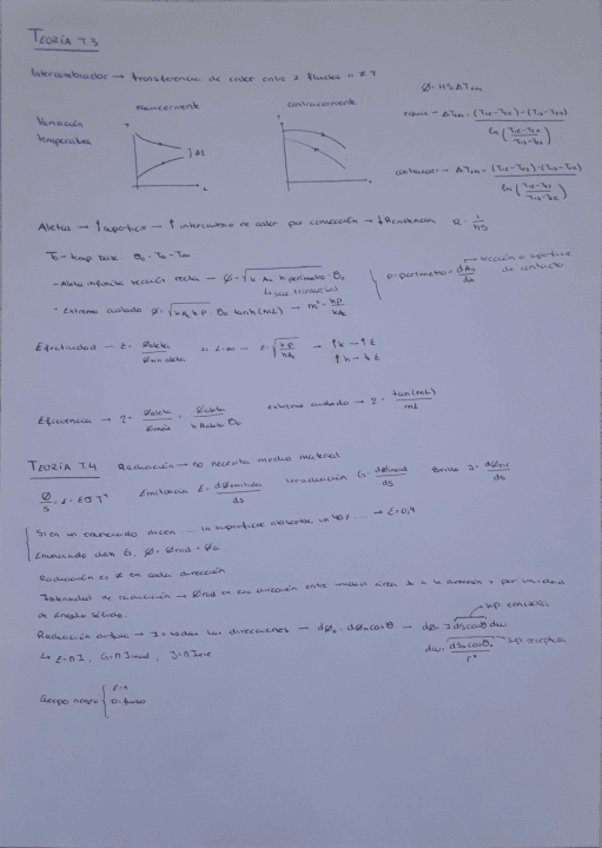 TEORÍA T.3
Intercambiador → transferencia de calor entre 2 fluidos a ≠ T
Ø = HSΔTLM
equicorriente contracorriente
Variación temperatura
T T
equic → ΔTLM = (T1E-T2E)-(T1S-T2S) / ln (T1E-T2E / T1S-T2S)
contracor → ΔTLM = (T1E-T2S)-(T1S-T2E) / ln (T1E-T2S / T1S-T2E)
Aletas → ↑ superficie → ↑ intercambio de calor por convección → ↓ Resistencia R = 1/hS
T0 → temp base θ0 = T0 - T∞
- Aleta infinita sección recta → Ø = √(k·Ac·h·perímetro) · θ0
↳ secc transversal
p = perímetro = dAs/dx → sección o superficie de contacto
- Extremo aislado Ø = √(kAc h P) · θ0 tanh(mL) → m² = hP/kAc
Efectividad → ε = Øaleta / Øsin aleta si L→∞ → ε = √(kP/hAc) → ↑k → ↑ε
↑h → ↓ε
Eficiencia → η = Øaleta / Ømáx = Øaleta / h Aaleta θ0 extremo aislado → η = tan(mL) / mL
TEORÍA T.4 Radiación → no necesita medio material
Ø/S = E = εσT⁴ Emitancia E = dØemitida/dS Irradiación G = dØincid/dS Brillo J = dØ/dS
Si en un enunciado dicen ... la superficie absorbe un 40% .... → ε = 0,4
Enunciado dan G, Ø = Ørad - Øa
Radiación es ≠ en cada dirección
Intensidad de radiación → Ørad en esa dirección entre unidad área ⊥ a la dirección y por unidad
de ángulo sólido.
Radiación difusa → I = todas las direcciones → dØθ = dØn cosθ → dØ = I dS cosθ dω
sup emisora
dω = dS2 cosθ2 / r² sup receptora
↳ E = πI, G = πIincid, J = πI
Cuerpo negro { ε=1
Difuso